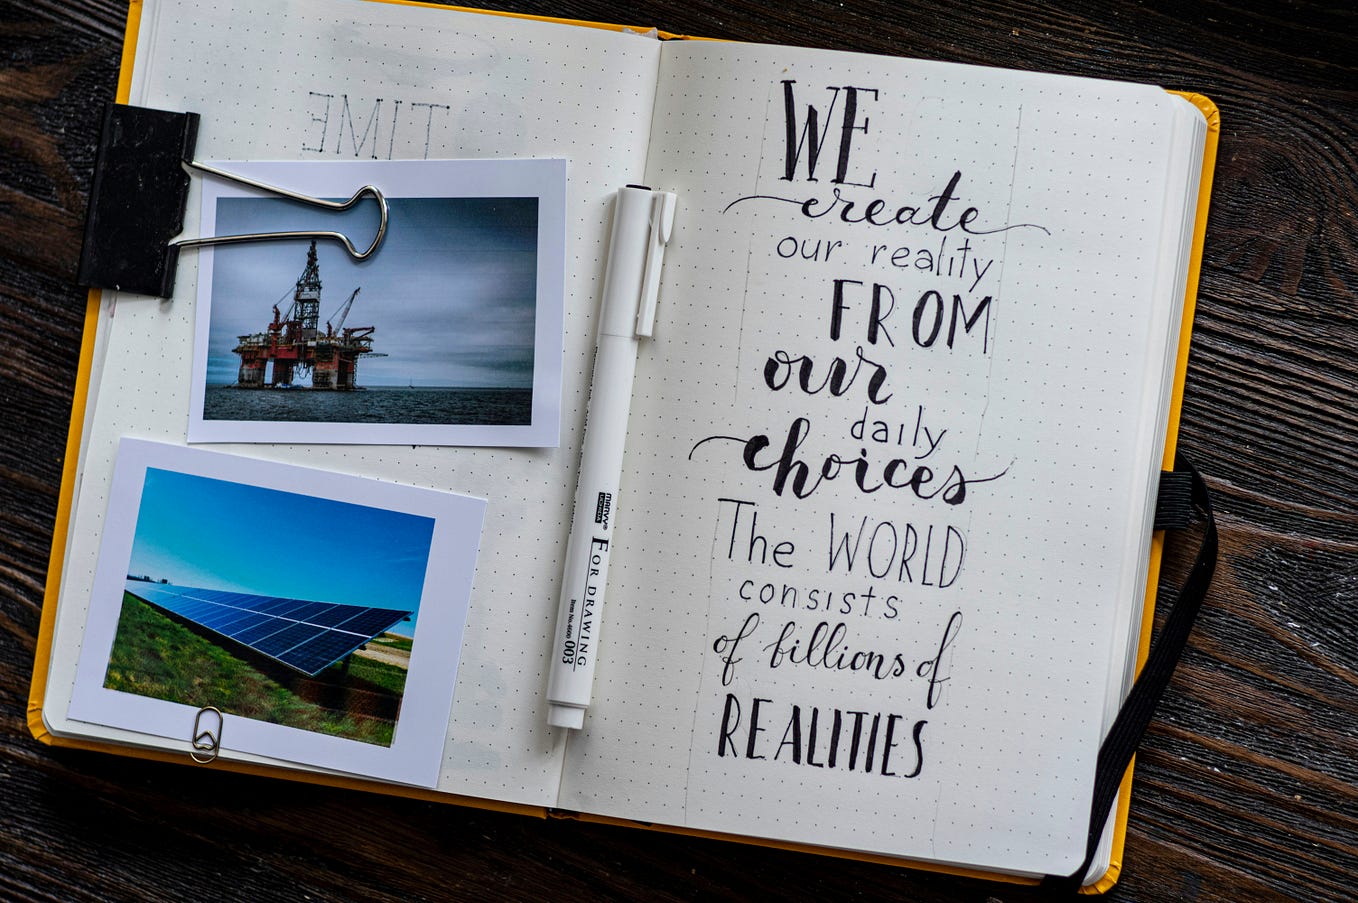 TIME
MARVY®
UCHIDA
FOR DRAWING
Item No.4600 003
WE
create
our reality
FROM
our
daily
choices
The WORLD
consists
of billions of
REALITIES